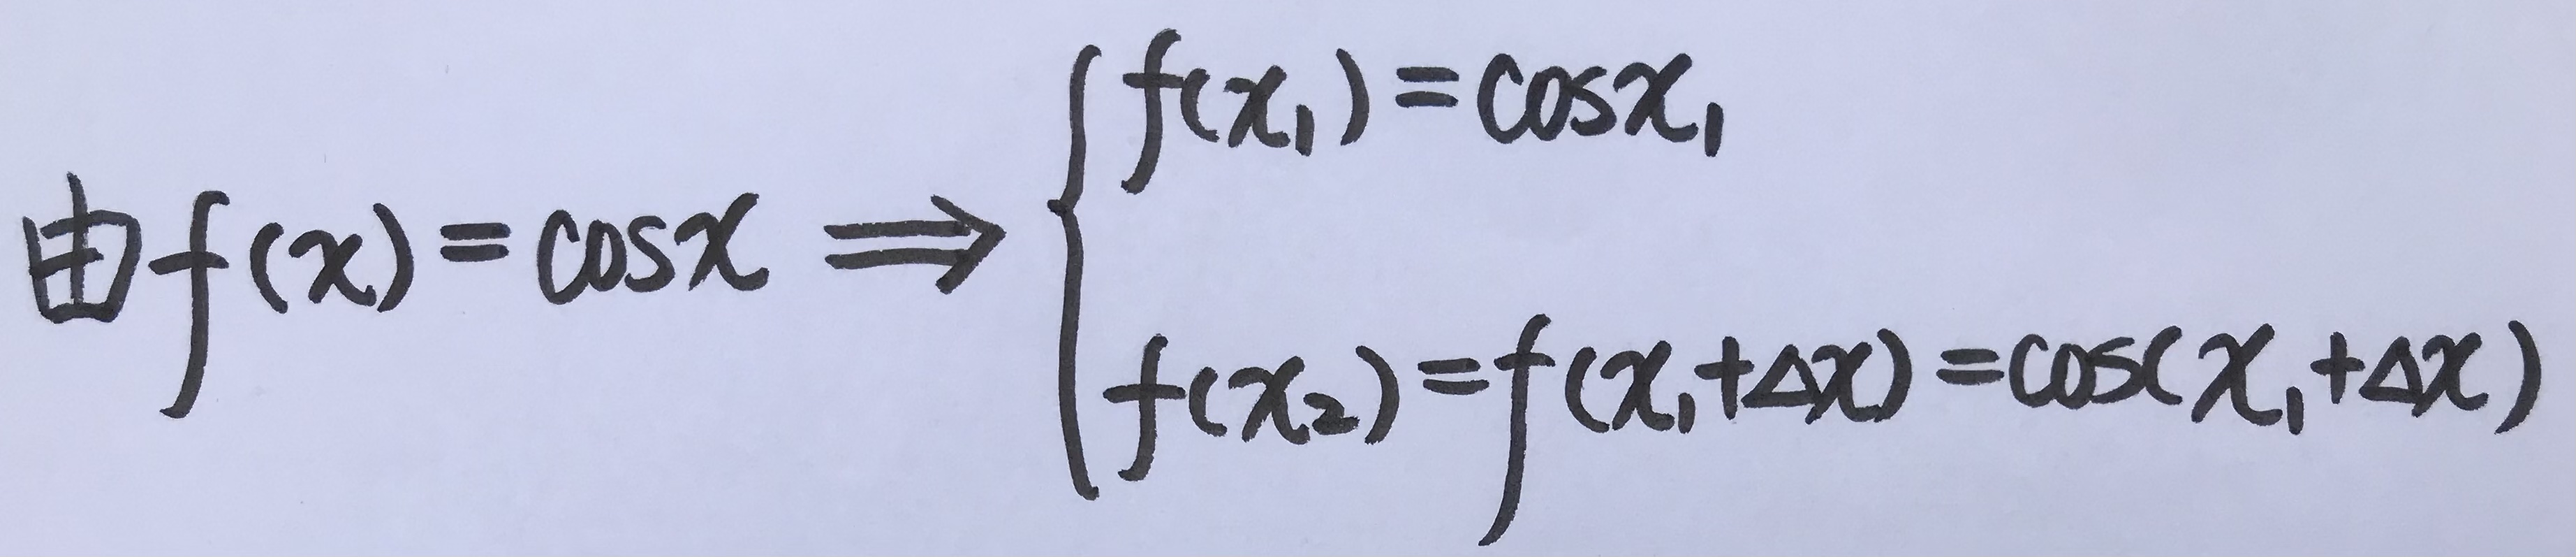 由f(x)=cosx⟹{f(x₁)=cosx₁
f(x₂)=f(x₁+Δx)=cos(x₁+Δx)